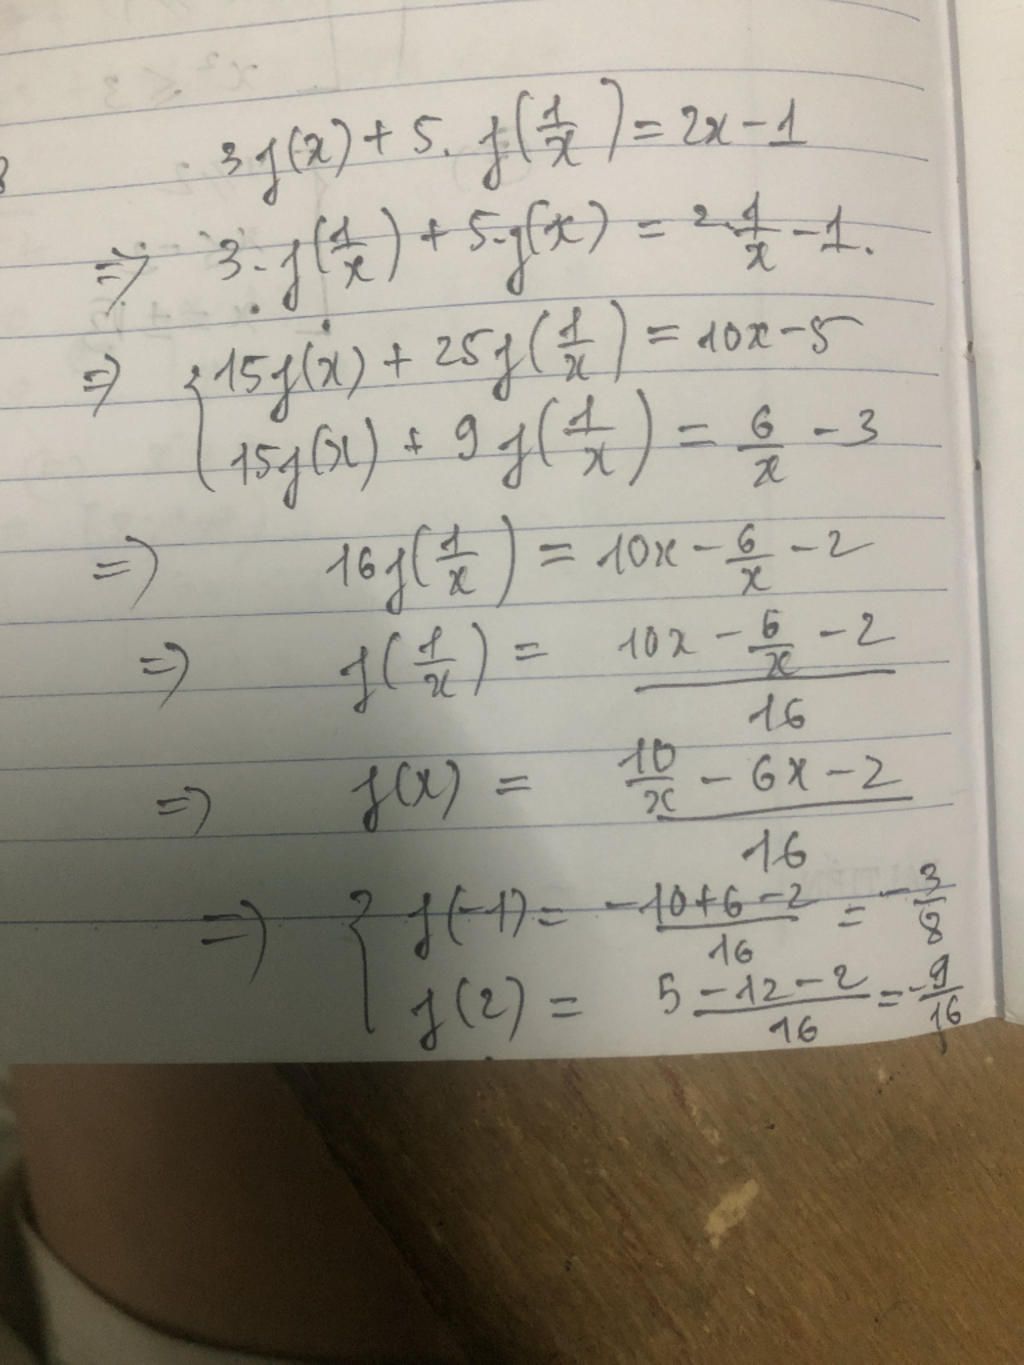 3f(x) + 5. f(1/x) = 2x - 1
=> 3. f(1/x) + 5.f(x) = 2.1/x - 1.
=> { 15f(x) + 25f(1/x) = 10x - 5
15f(x) + 9f(1/x) = 6/x - 3
=> 16f(1/x) = 10x - 6/x - 2
=> f(1/x) = (10x - 6/x - 2)/16
=> f(x) = (10/x - 6x - 2)/16
=> { f(-1) = (-10+6-2)/16 = -3/8
f(2) = (5-12-2)/16 = -9/16